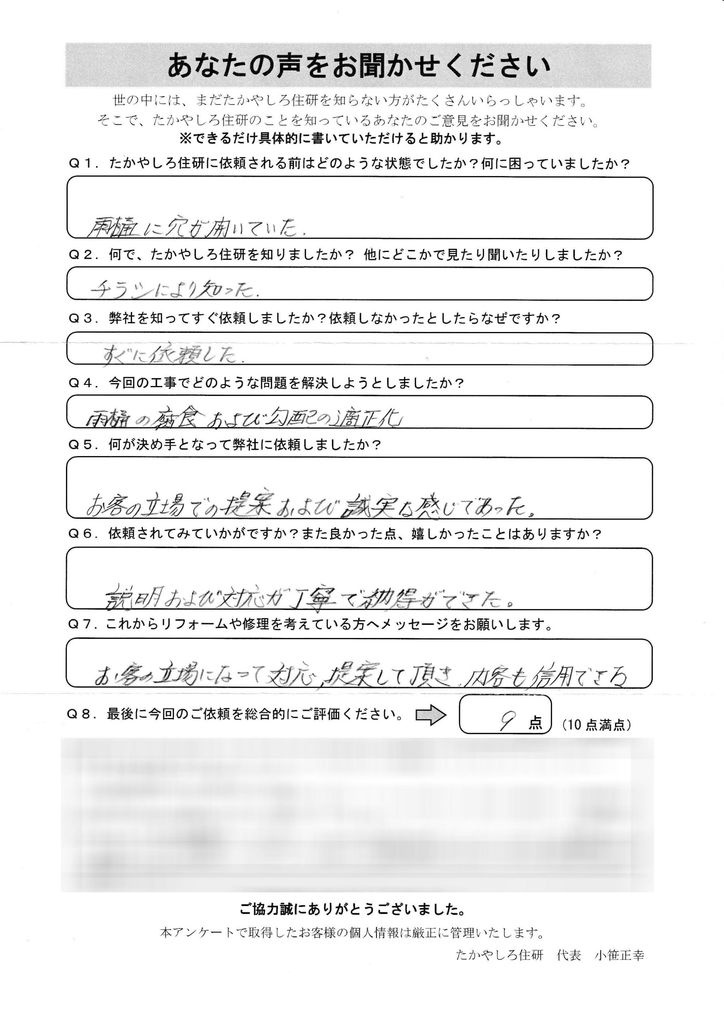 あなたの声をお聞かせください
世の中には、まだたかやしろ住研を知らない方がたくさんいらっしゃいます。
そこで、たかやしろ住研のことを知っているあなたのご意見をお聞かせください。
※できるだけ具体的に書いていただけると助かります。
Q1．たかやしろ住研に依頼される前はどのような状態でしたか？何に困っていましたか？
雨樋に穴が開いていた．
Q2．何で、たかやしろ住研を知りましたか？ 他にどこかで見たり聞いたりしましたか？
チラシにより知った．
Q3．弊社を知ってすぐ依頼しましたか？依頼しなかったとしたらなぜですか？
すぐに依頼した．
Q4．今回の工事でどのような問題を解決しようとしましたか？
雨樋の腐食および勾配の適正化
Q5．何が決め手となって弊社に依頼しましたか？
お客の立場での提案および誠実な感じであった。
Q6．依頼されてみていかがですか？また良かった点、嬉しかったことはありますか？
説明および対応が丁寧で納得ができた。
Q7．これからリフォームや修理を考えている方へメッセージをお願いします。
お客の立場になって対応，提案して頂き，内容も信用できる
Q8．最後に今回のご依頼を総合的にご評価ください。 9 点 (10点満点)
ご協力誠にありがとうございました。
本アンケートで取得したお客様の個人情報は厳正に管理いたします。
たかやしろ住研　代表　小笹正幸